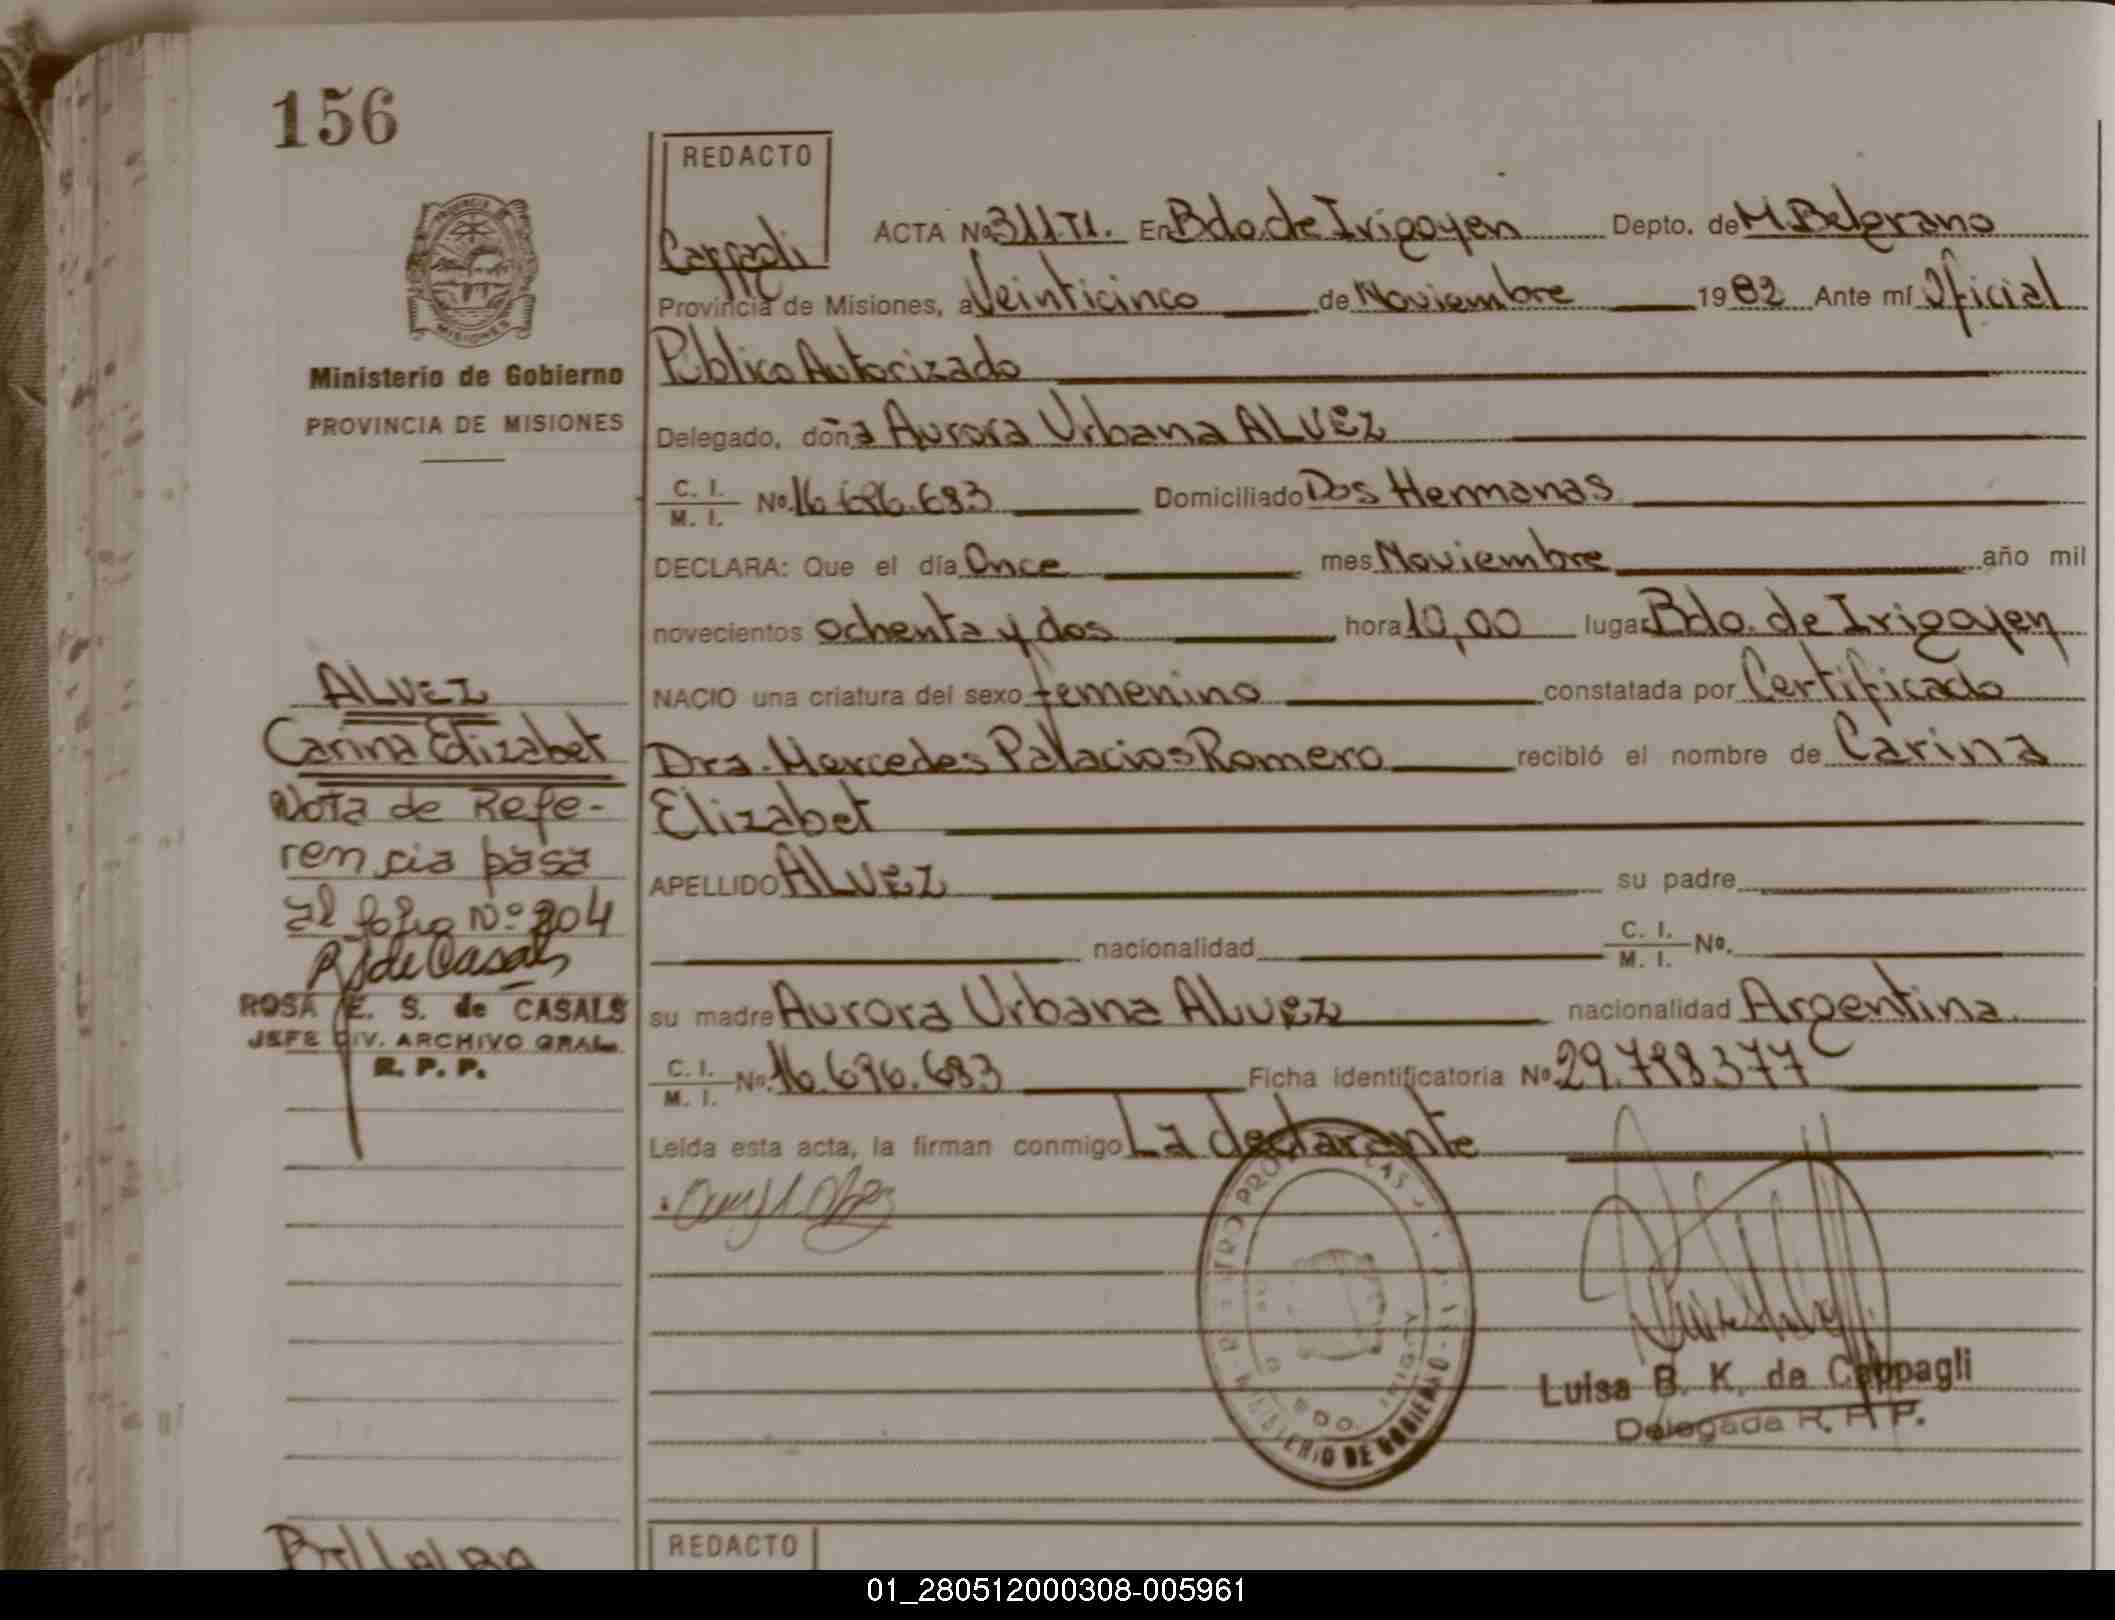 156
REDACTO
Cappagli
ACTA Nº 311.T1. En Bdo.de Irigoyen Depto. de M.Belgrano
Provincia de Misiones, a Veinticinco de Noviembre 1982 Ante mí Oficial
Público Autorizado
Ministerio de Gobierno
PROVINCIA DE MISIONES
Delegado, doña Aurora Urbana ALVEZ
C. I.
M. I. Nº 16.696.683 Domiciliado Dos Hermanas
DECLARA: Que el día Once mes Noviembre año mil
novecientos ochenta y dos hora 10,00 lugar Bdo. de Irigoyen
NACIO una criatura del sexo femenino constatada por Certificado
Dra. Mercedes Palacios Romero recibló el nombre de Carina
Elizabet
APELLIDO ALVEZ su padre
nacionalidad C. I.
M. I. Nº.
su madre Aurora Urbana ALVEZ nacionalidad Argentina
C. I.
M. I. Nº 16.696.683 Ficha identificatoria Nº 29.798.377
Leída esta acta, la firman conmigo La declarante
ALVEZ
Carina Elizabet
Nota de Refe-
rencia pasa
al folio Nº 204
R S de Casals
ROSA E. S. de CASALS
JEFE DIV. ARCHIVO GRAL.
R. P. P.
MINISTERIO DE GOBIERNO
Luisa B. K. de Cappagli
Delegada R. P. P.
REDACTO
01_280512000308-005961